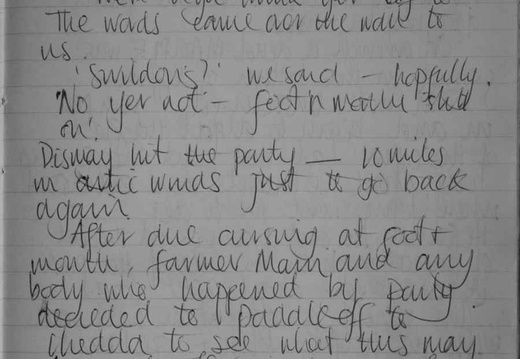 The words came over the wall to
us.
'Swildons?' we said – hopefully.
'No yer not – foot n mouth still
on'.
Dismay hit the party — 10 miles
in arctic winds just to go back
again.
After due cursing at foot +
mouth, farmer Main and any
body who happened by party
decided to paddle off to
Chedda to see what this may